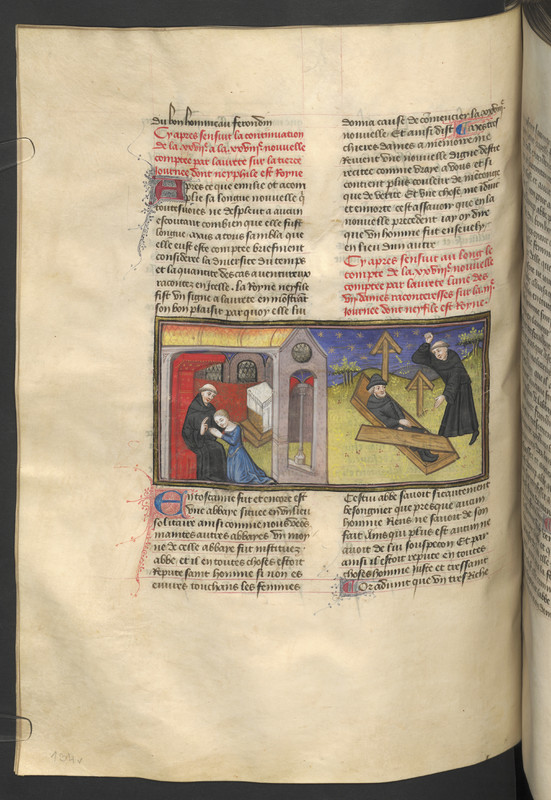 du bon hommeau ferondin
Cy apres sensuit la continuation
de la .xxviije. a la .xxviije. nouvelle
comptee par laurete sur la tierce
Journee dont neyphile est Royne
Apres ce que emilie ot acom
plie sa longue nouvelle q
toutesuoies ne desplent a aucun
escoutant combien que elle fust
longue. Mais a tous sambla que
elle eust este comptee briefment
considere la diversite du temps
et la quantite des cas aventureux
racontez en icelle. la Royne neyfile
fist un signe a laurete en monstrant
son bon plaisir par quoy elle lui
donna cause de comencier la
nouvelle. Et ainsi dist
chieres dames a memoire me
Revient une nouvelle digne destre
recitee comme vraye a vous et si
contient plus couleur de menconge
que de verite. Et une chose me induit
et enhorte cest assavoir que en la
nouvelle precedent iay oy dire
que un homme fut ensevely
en lieu dun autre
Cy apres sensuit au long le
compte de la .xxviije. nouvelle
comptee par laurete lune des
vij dames raconteresses sur la iije
Journee dont neyfile est Royne.
En toscanne fut et encores est
une abbaye situee en un lieu
solitaire ainsi comme nous veons
maintes autres abbayes. Un moy
ne de celle abbaye fut institue
abbe et il en toutes choses estoit
Repute saint homme si non es
euvres touchans les femmes
Cestui abbe savoit si cautement
besongnier que presque aucun
homme Riens ne savoit de son
fait. Ains qui plus est aucun ne
avoit de lui souspecon. Et par
ainsi il estoit repute en toutes
choses homme juste et tressaint
Or advint que un tres Riche